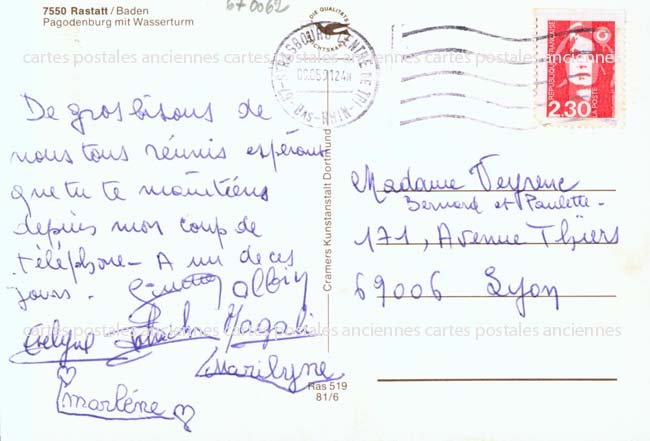 7550 Rastatt / Baden
Pagodenburg mit Wasserturm
670062
DIE QUALITÄTS
STRASBOURG CENTRE DE TRI
67 BAS-RHIN
REPUBLIQUE FRANÇAISE
2,30
LA POSTE
De gros bisous de
nous tous réunis espérant
que tu te maintiens
depuis mon coup de
téléphone - A un de ces
jours.
Albin
Evelyne Patrick Magali
Marilyne
marlène
Cramers Kunstanstalt Dortmund
Ras 519
81/6
Madame Veyrenc
Bernard et Paulette -
171, Avenue Thiers
69006 Lyon
cartes postales anciennes cartes postales anciennes cartes postales anciennes
cartes postales anciennes cartes postales anciennes cartes postales anciennes